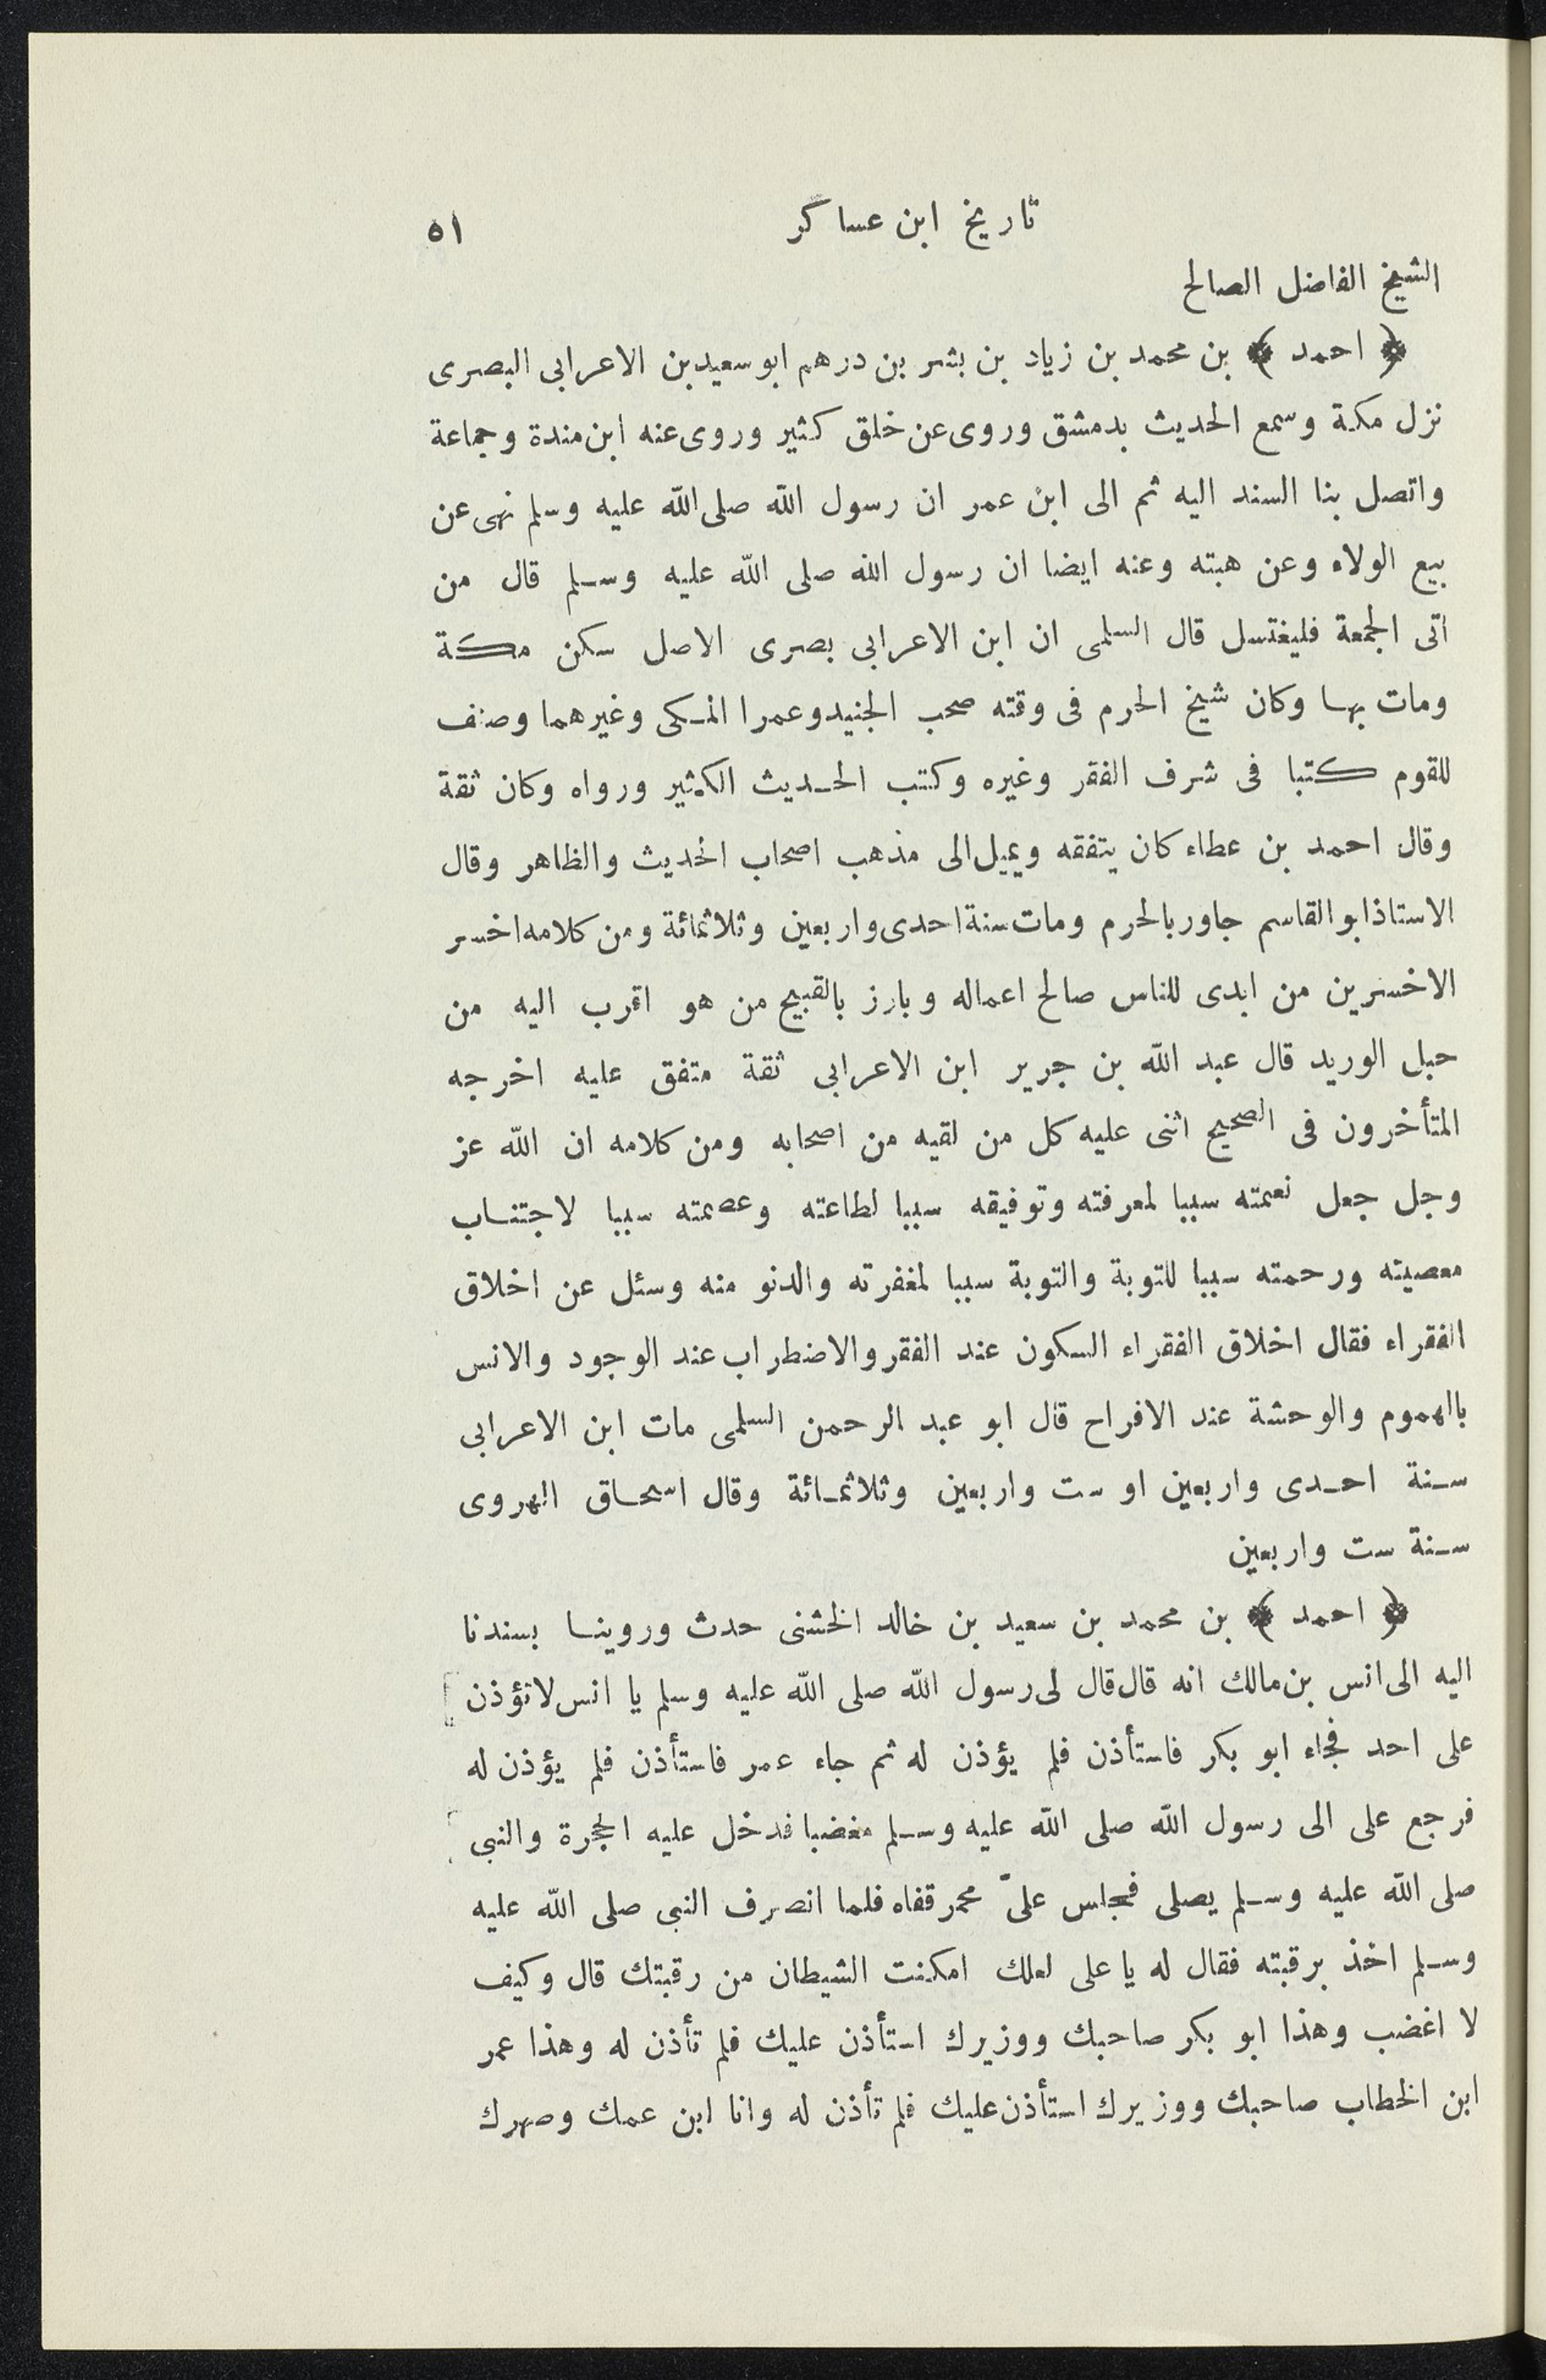 تاريخ ابن عساكر ٥١
الشيخ الفاضل الصالح
﴿ احمد ﴾ بن محمد بن زياد بن بشر بن درهم ابو سعيد بن الاعرابى البصرى
نزل مكة وسمع الحديث بدمشق وروى عن خلق كثير وروى عنه ابن مندة وجماعة
واتصل بنا السند اليه ثم الى ابن عمر ان رسول الله صلى الله عليه وسلم نهى عن
بيع الولاء وعن هبته وعنه ايضا ان رسول الله صلى الله عليه وسلم قال من
اتى الجمعة فليغتسل قال السلمى ان ابن الاعرابى بصرى الاصل سكن مكة
ومات بها وكان شيخ الحرم فى وقته صحب الجنيد وعمرا المكى وغيرهما وصنف
للقوم كتبا فى شرف الفقر وغيره وكتب الحديث الكثير ورواه وكان ثقة
وقال احمد بن عطاء كان يتفقه ويميل الى مذهب اصحاب الحديث والظاهر وقال
الاستاذ ابو القاسم جاور بالحرم ومات سنة احدى واربعين وثلاثمائة ومن كلامه اخسر
الاخسرين من ابدى للناس صالح اعماله وبارز بالقبيح من هو اقرب اليه من
حبل الوريد قال عبد الله بن جرير ابن الاعرابى ثقة متفق عليه اخرجه
المتأخرون فى الصحيح اثنى عليه كل من لقيه من اصحابه ومن كلامه ان الله عز
وجل جعل نعمته سببا لمعرفته وتوفيقه سببا لطاعته وعصمته سببا لاجتناب
معصيته ورحمته سببا للتوبة والتوبة سببا لمغفرته والدنو منه وسئل عن اخلاق
الفقراء فقال اخلاق الفقراء السكون عند الفقر والاضطراب عند الوجود والانس
بالهموم والوحشة عند الافراح قال ابو عبد الرحمن السلمى مات ابن الاعرابى
سنة احدى واربعين او ست واربعين وثلاثمائة وقال اسحاق الهروى
سنة ست واربعين
﴿ احمد ﴾ بن محمد بن سعيد بن خالد الخشنى حدث وروينا بسندنا
اليه الى انس بن مالك انه قال قال لى رسول الله صلى الله عليه وسلم يا انس لا تؤذن
على احد فجاء ابو بكر فاستأذن فلم يؤذن له ثم جاء عمر فاستأذن فلم يؤذن له
فرجع على الى رسول الله صلى الله عليه وسلم مغضبا فدخل عليه الحجرة والنبى
صلى الله عليه وسلم يصلى فجلس علىّ محمر قفاه فلما انصرف النبى صلى الله عليه
وسلم اخذ برقبته فقال له يا على لعلك امكنت الشيطان من رقبتك قال وكيف
لا اغضب وهذا ابو بكر صاحبك ووزيرك استأذن عليك فلم تأذن له وهذا عمر
ابن الخطاب صاحبك ووزيرك استأذن عليك فلم تأذن له وانا ابن عمك وصهرك